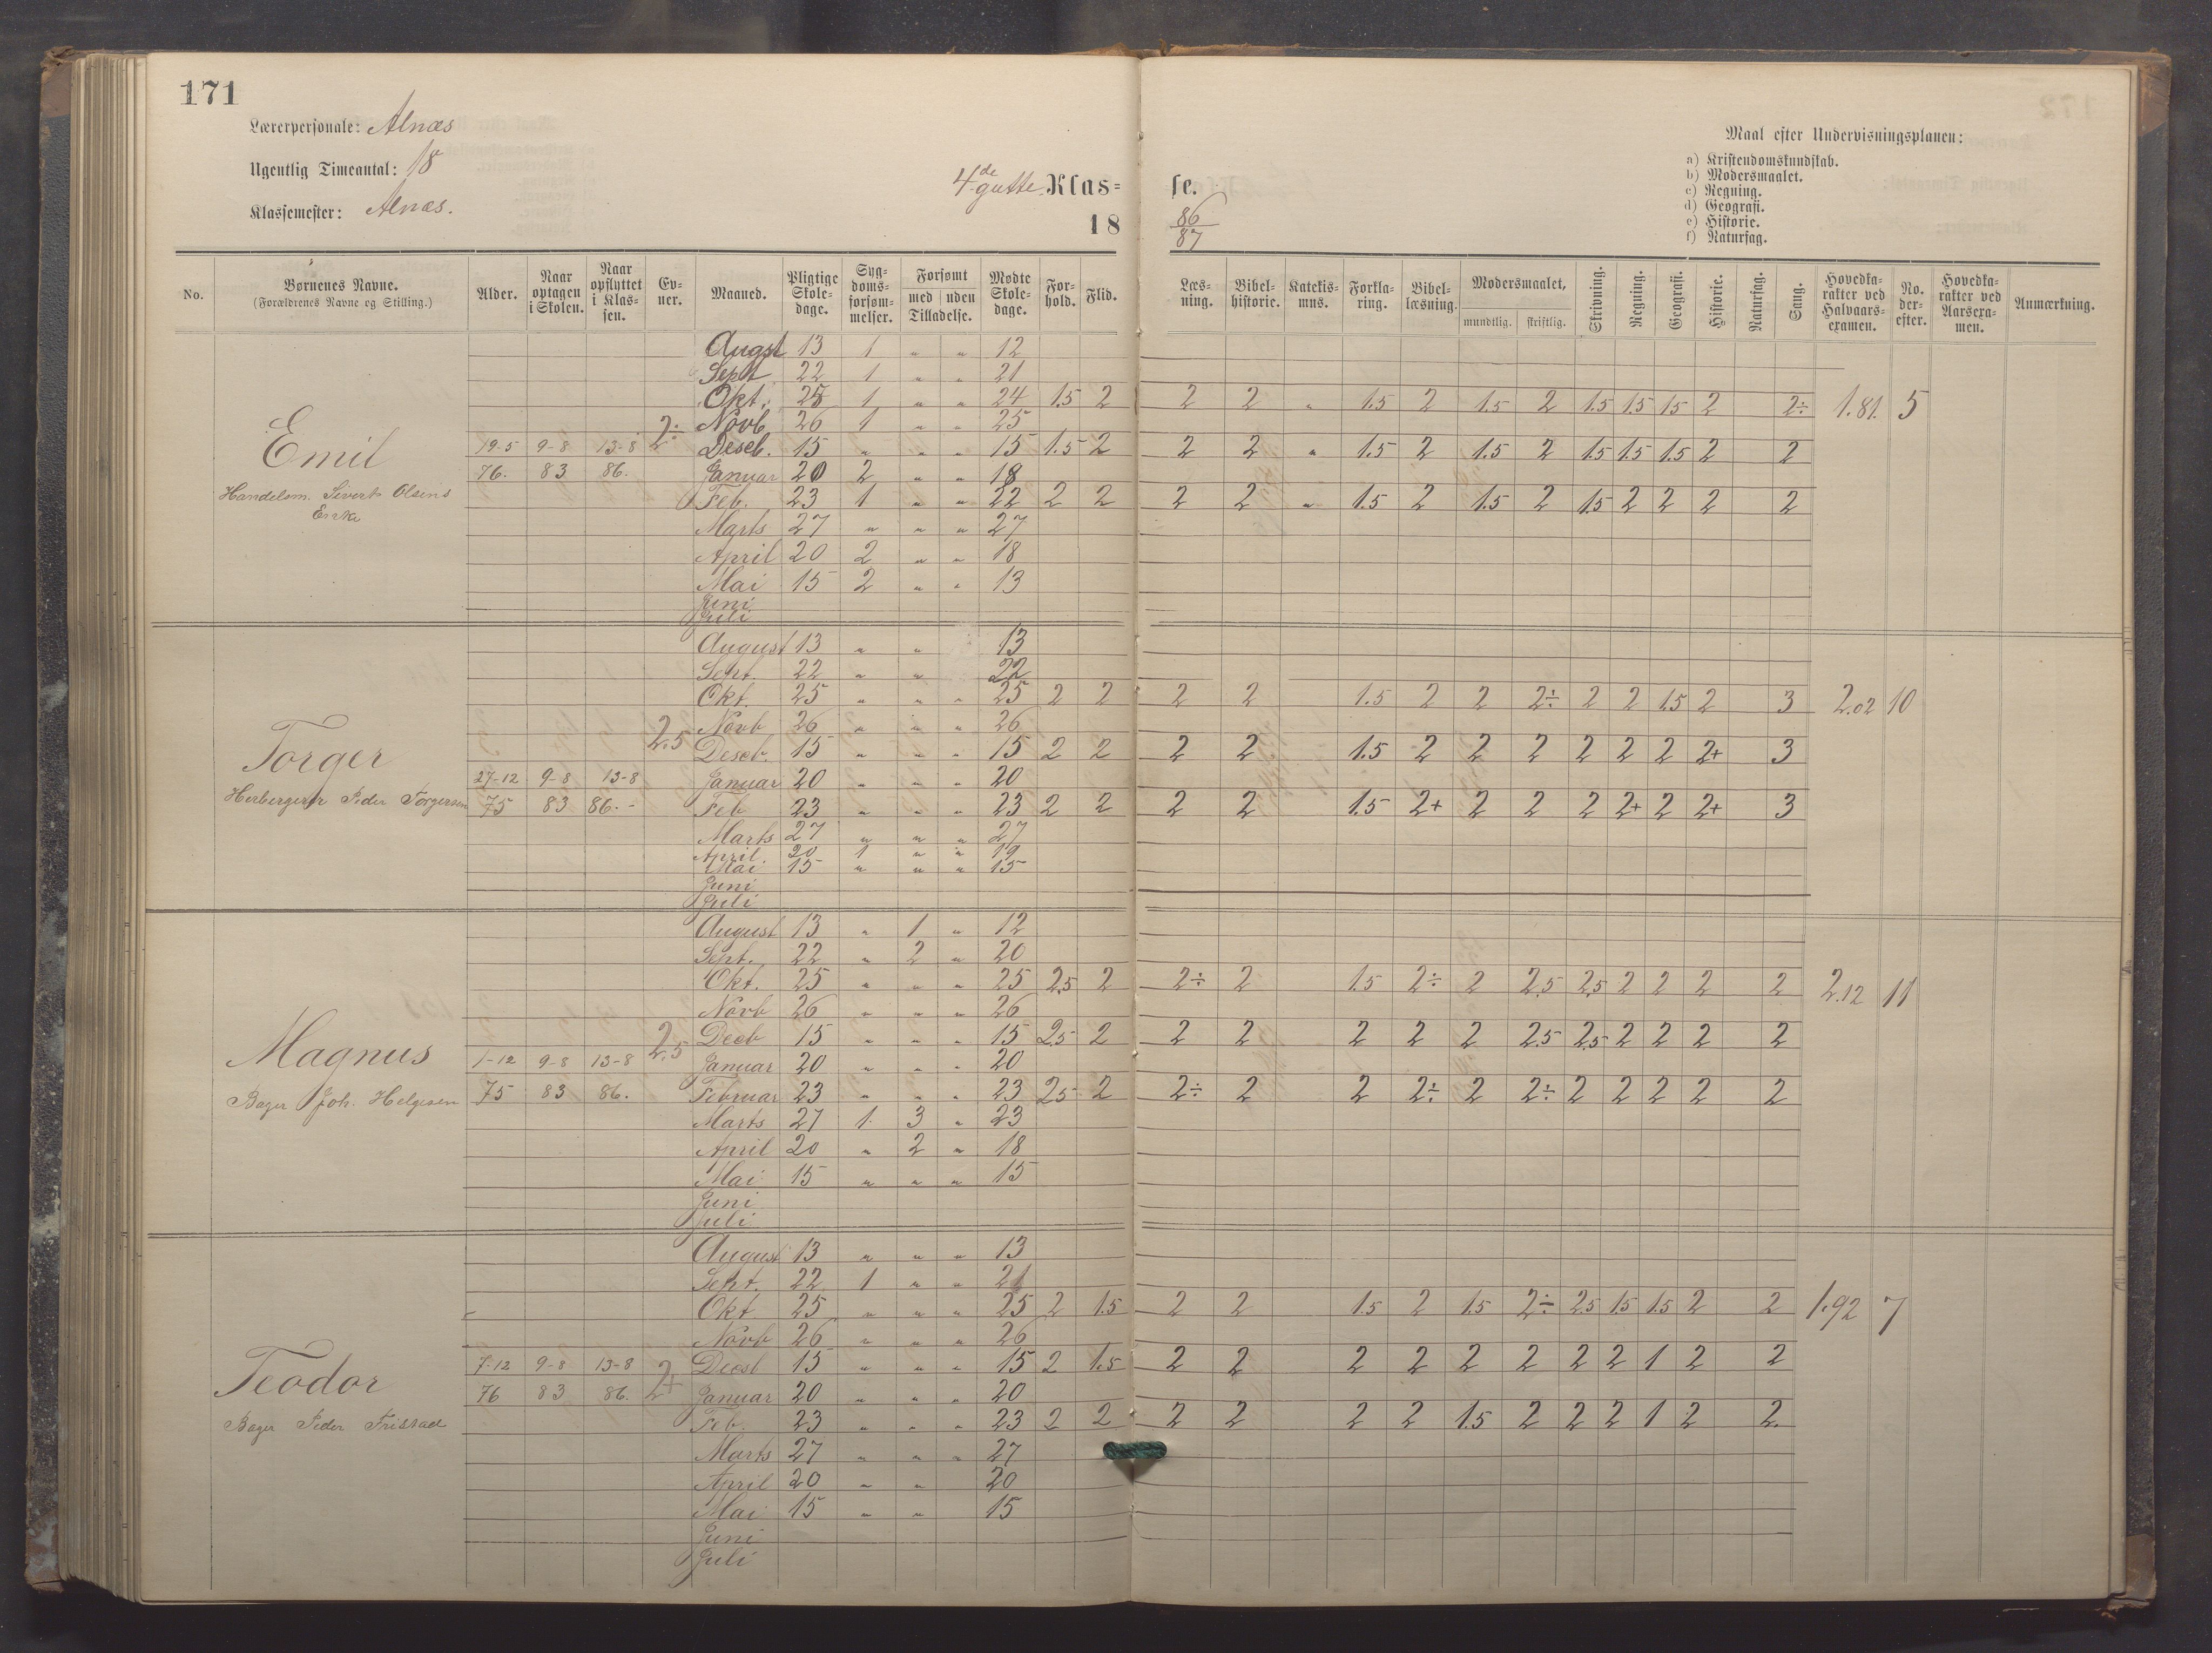 171
Lærerpersonale: Alnæs
Ugentlig Timeantal: 18
Klassemester: Alnæs.
4de gutte Klas= se.
18 86/87
Maal efter Undervisningsplanen:
a) Kristendomskundskab.
b) Modersmaalet.
c) Regning.
d) Geografi.
e) Historie.
f) Naturfag.
No. Børnenes Navne. (Forældrenes Navne og Stilling.) Alder. Naar optagen i Skolen. Naar opflyttet i Klas-sen. Ev-ner. Maaned. Pligtige Skole-dage. Syg-doms-forsøm-melser. Forsømt med uden Tilladelse. Mødte Skole-dage. For-hold. Flid. Læs-ning. Bibel-historie. Katekis-mus. Forkla-ring. Bibel-læsning. Modersmaalet, mundtlig. skriftlig. Skrivning. Regning. Geografi. Historie. Naturfag. Sang. Hovedka-rakter ved Halvaars-examen. No. der-efter. Hovedka-rakter ved Aarsexa-men. Anmærkning.
Augst 13 1 " " 12
Sept 22 1 " " 21
Okt. 25 1 " " 24 1.5 2 2 2 " 1.5 2 1.5 2 1.5 1.5 1.5 2 2÷ 1.81. 5
Novb 26 1 " " 25
Emil 19-5 9-8 13-8 2÷ Deseb. 15 " " " 15 1.5 2 2 2 " 1.5 2 1.5 2 1.5 1.5 1.5 2 2
76. 83 86. Januar 20 2 " " 18
Handelsm. Siverts Olsens Enke Feb. 23 1 " " 22 2 2 2 2 " 1.5 2 1.5 2 1.5 2 2 2 2
Marts 27 " " " 27
April 20 2 " " 18
Mai 15 2 " " 13
Juni
Juli
August 13 " " 13
Sept. 22 " " 22
Okt. 25 " " " 25 2 2 2 2 1.5 2 2 2÷ 2 2 1.5 2 3 2.02 10
Novb 26 " " " 26
Torger 2.5 Deseb. 15 " " " 15 2 2 2 2 1.5 2 2 2 2 2 2 2+ 3
27-12 9-8 13-8 Januar 20 " " " 20
Herbergerer Peder Torgersen 75 83 86.- Feb 23 " " " 23 2 2 2 2 1.5 2+ 2 2 2 2+ 2 2+ 3
Marts 27 " " " 27
April. 20 1 " " 19
Mai 15 " " " 15
Juni
Juli
August 13 " 1 " 12
Sept. 22 " 2 " 20
Okt. 25 " " " 25 2.5 2 2÷ 2 1.5 2÷ 2 2.5 2.5 2 2 2 2 2.12 11
Novb 26 " " " 26
Magnus 2.5 Deeb 15 " " " 15 2.5 2 2 2 2 2 2 2.5 2.5 2 2 2 2
1-12 9-8 13-8 Januar 20 " " " 20
Bager Joh. Helgesen 75 83 86. Februar 23 " " " 23 2.5 2 2÷ 2 2 2÷ 2 2÷ 2 2 2 2 2
Marts 27 1. 3 " 23
April 20 " 2 " 18
Mai 15 " " " 15
Juni
Juli
August 13 " " " 13
Sept. 22 1 " " 21
Okt 25 " " " 25 2 1.5 2 2 1.5 2 1.5 2÷ 2.5 1.5 1.5 2 2 1.92 7
Novb 26 " " " 26
Teodor 7-12 9-8 13-8 2+ Decbl 15 " " " 15 2 1.5 2 2 2 2 2 2 2 2 1 2 2
76 83 86. Januar 20 " " " 20
Bager Peder Fristad Feb. 23 " " " 23 2 2 2 2 2 2 1.5 2 2 2 1 2 2.
Marts 27 " " " 27
April 20 " " 20
Mai 15 " " 15
Juni
Juli